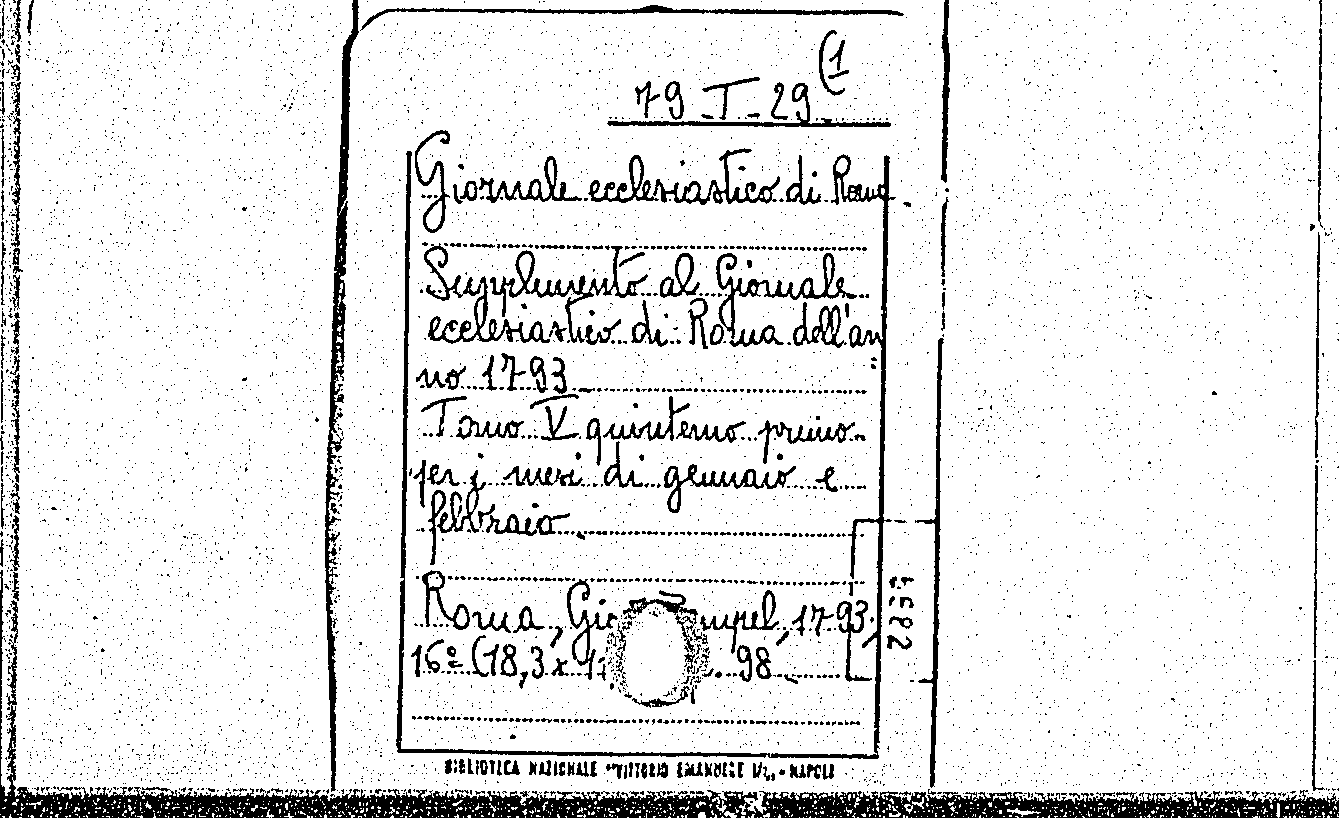 79-T-29(1
Giornale ecclesiastico di Roma.
Supplemento al Giornale
ecclesiastico di Roma dell'an
no 1793
Tomo V quinterno primo
per i mesi di gennaio e
febbraio.
Roma, 1793,
16° (18,3 x 98
BIBLIOTECA NAZIONALE "VITTORIO EMANUELE III" - NAPOLI